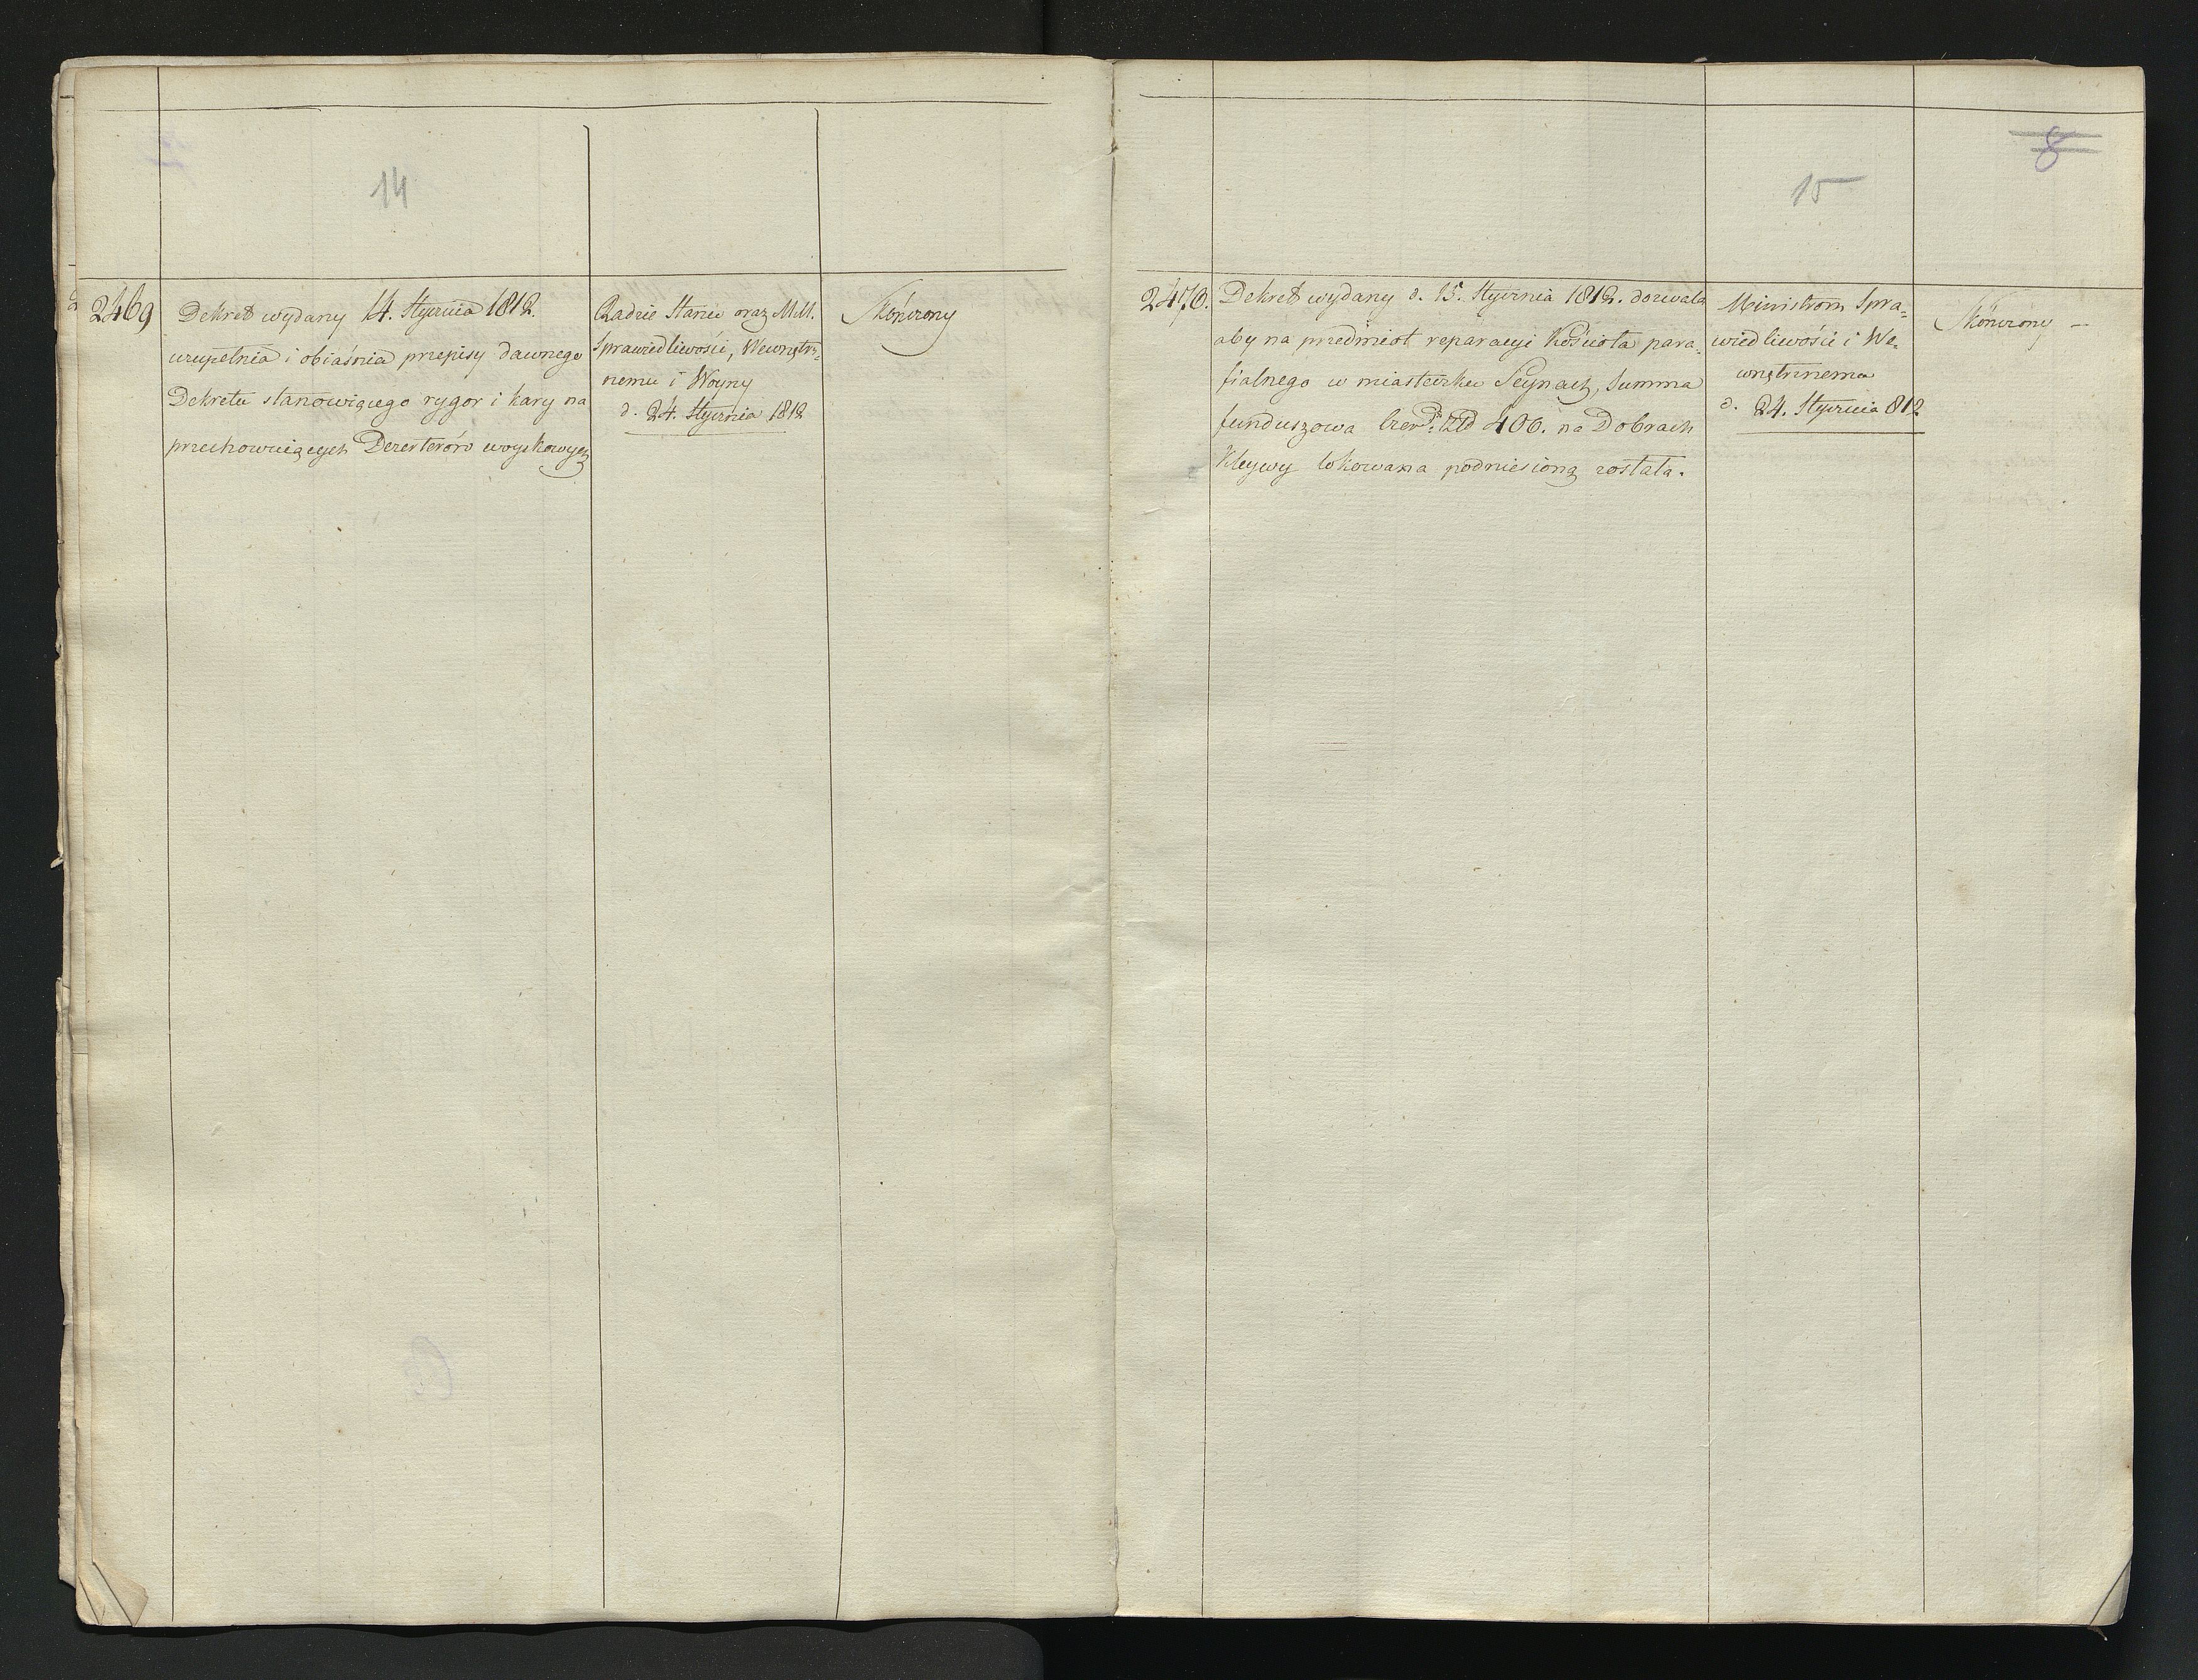 14
2469
Dekret wydany 14. Stycznia 1812.
uzupełnia i obiaśnia przepisy dawnego
Dekretu stanowiącego rygor i kary na
przechowuiących Dezerterów woyskowych
Radzie Stanu oraz M.M.
Sprawiedliwości, Wewnętrz-
nemu i Woyny
d. 24. Stycznia 1812
Skończony
8
15
2470.
Dekret wydany d. 15. Stycznia 1812. dozwala
aby na przedmiot reparacyi Kościoła para-
fialnego w miasteczku Seynach, Summa
funduszowa 406. na Dobrach
Kleywy lokowana podniesioną została.
Ministrom Spra-
wiedliwości i We-
wnętrznemu
d. 24. Stycznia 812
Skończony –